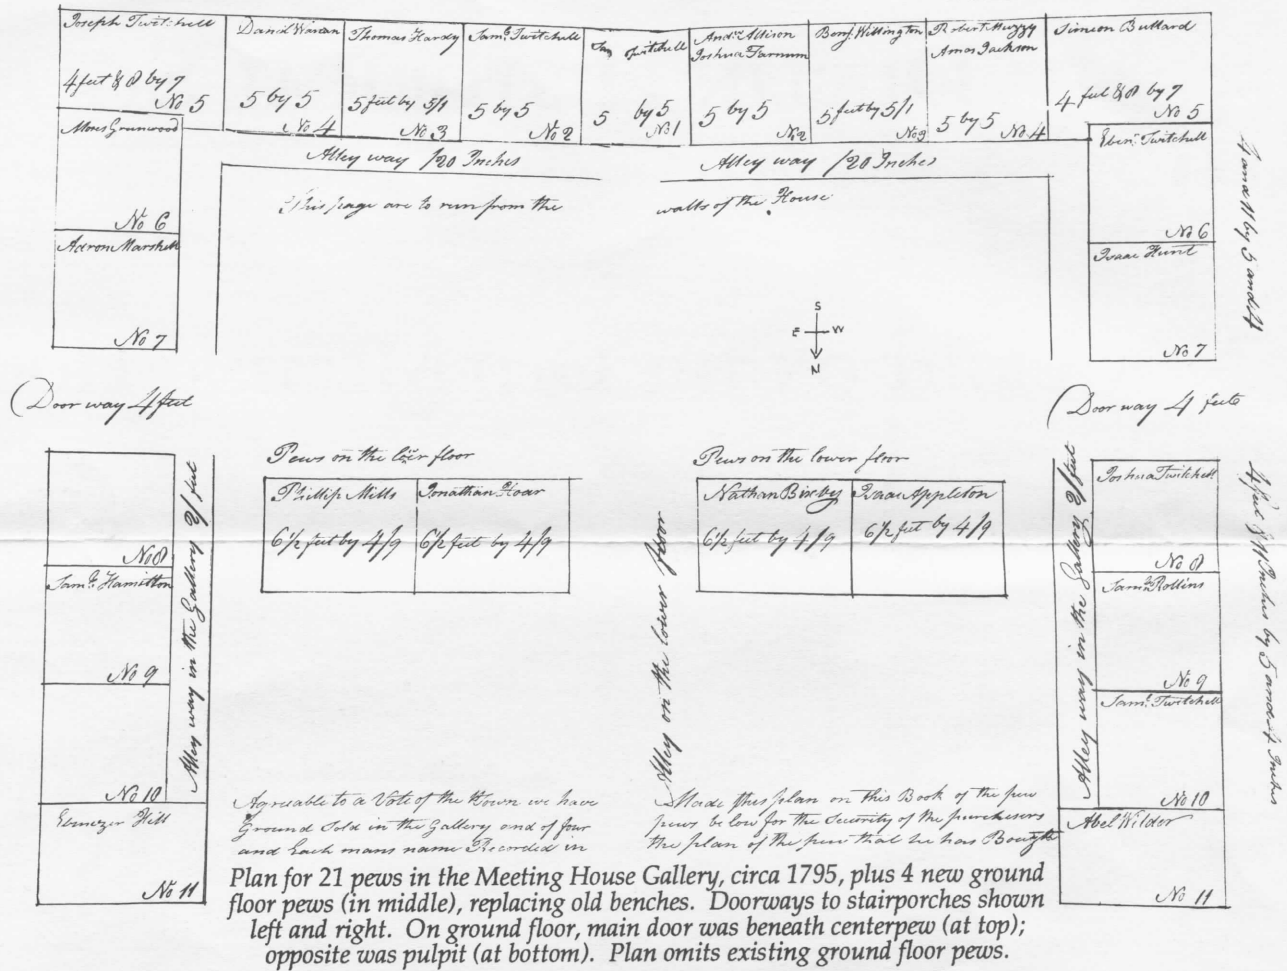 Joseph Twitchell
4 feet & 8 by 7
No 5
David Winan
5 by 5
No 4
Thomas Hardy
5 feet by 5/1
No 3
Sam.l Twitchell
5 by 5
No 2
Twitchell
5 by 5
No 1
And.w Allison
Joshua Farnum
5 by 5
No 2
Benj. Willington
5 feet by 5/1
No 3
Robert Muzzy
Amos Jackson
5 by 5
No 4
Simeon Bullard
4 feet & 8 by 7
No 5
Moses Greenwood
No 6
Aaron Marshell
No 7
Alley way /20 Inches
Alley way /20 Inches
This page are to run from the
walls of the House
Eben.r Twitchell
No 6
Isaac Hunt
No 7
4 and 11 by 5 and 4
S
E W
N
Door way 4 feet
Door way 4 feet
No 8
Sam.l Hamilton
No 9
No 10
Ebenezer Hill
No 11
Alley way in the Gallery 2/feet
Pews on the lower floor
Phillip Mills
6 1/2 feet by 4/9
Jonathan Hoar
6 1/2 feet by 4/9
Pews on the lower floor
Nathan Bixby
6 1/2 feet by 4/9
Isaac Appleton
6 1/2 feet by 4/9
Alley on the lower floor
Alley way in the Gallery 2/feet
Joshua Twitchell
No 8
Sam.l Rollins
No 9
Sam.l Twitchell
No 10
Abel Wilder
No 11
4 feet & 11 Inches by 5 and 4 Inches
Agreeable to a Vote of the Town we have
Ground Sold in the Gallery and of four
and Each mans name Recorded in
Made this plan on this Book of the pew
pews below for the Security of the purchesers
the plan of the pew that he has Bought
Plan for 21 pews in the Meeting House Gallery, circa 1795, plus 4 new ground
floor pews (in middle), replacing old benches. Doorways to stairporches shown
left and right. On ground floor, main door was beneath centerpew (at top);
opposite was pulpit (at bottom). Plan omits existing ground floor pews.